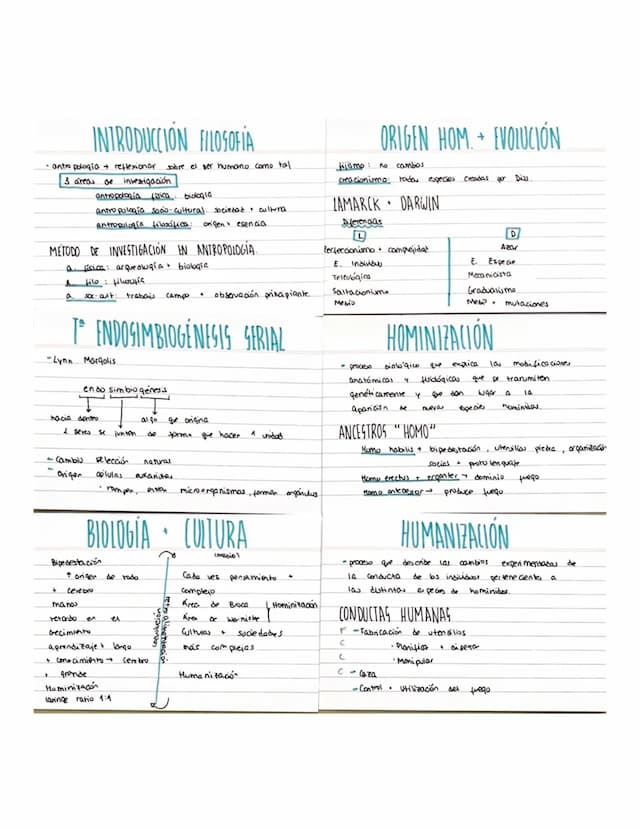 INTRODUCCIÓN FILOSOFÍA
· antropología → reflexionar sobre el ser humano como tal
3 áreas de investigación
antropología física: biología
antropología socio-cultural: societat + cultura
antropología filosófica: origen + esencia
MÉTODO DE INVESTIGACIÓN EN ANTROPOLOGÍA.
a. física: arqueología + biología
a. filo: filosofía
a. soc-cult: trabajo campo + observación participante
ORIGEN HOM. + EVOLUCIÓN
fijismo: no cambios
creacionismo: todas especies creadas por Dios.
LAMARCK + DARWIN
Diferencias
L
D
Perfeccionismo + complejidad
Azar
E. Individuo
E. Especie
Teleológico
Mecanicista
Saltacionismo
Gradualismo
Medio
Medio + mutaciones
Tª ENDOSIMBIOGÉNESIS SERIAL
- Lynn Margolis
endosimbiogénesis
hacia dentro
algo que origina
2 seres se juntan de forma que hacen 1 unidad
- Cambio selección natural
- Origen células eucariotas
microorganismos, forman orgánulos
HOMINIZACIÓN
- proceso biológico que explica las modificaciones
anatómicas y fisiológicas que se transmiten
genéticamente y que dan lugar a la
aparición de nuevas especies homínidas.
ANCESTROS "HOMO"
Homo habilis → bipedestación, utensilios piedra, organización
social + protolenguaje
Homo erectus + ergaster → dominio fuego
Homo antecessor → produce fuego
BIOLOGÍA + CULTURA
Bipedestación
↑ origen de todo
+ cerebro
manos
retardo en el
crecimiento
aprendizaje + largo
+ conocimiento → cerebro
+ grande
Hominización
laringe ratio 1:1
retroalimentación
Cada vez pensamiento +
complejo
Área de Broca
Hominización
Área de Wernicke
Culturas + sociedades
más complejas
Humanización
HUMANIZACIÓN
- proceso que describe los cambios experimentados de
la conducta de los individuos pertenecientes a
las distintas especies de homínidos.
CONDUCTAS HUMANAS
F - Fabricación de utensilios
C · Planifica + diseñar
C · Manipular
C - Caza
- Control + utilización del fuego